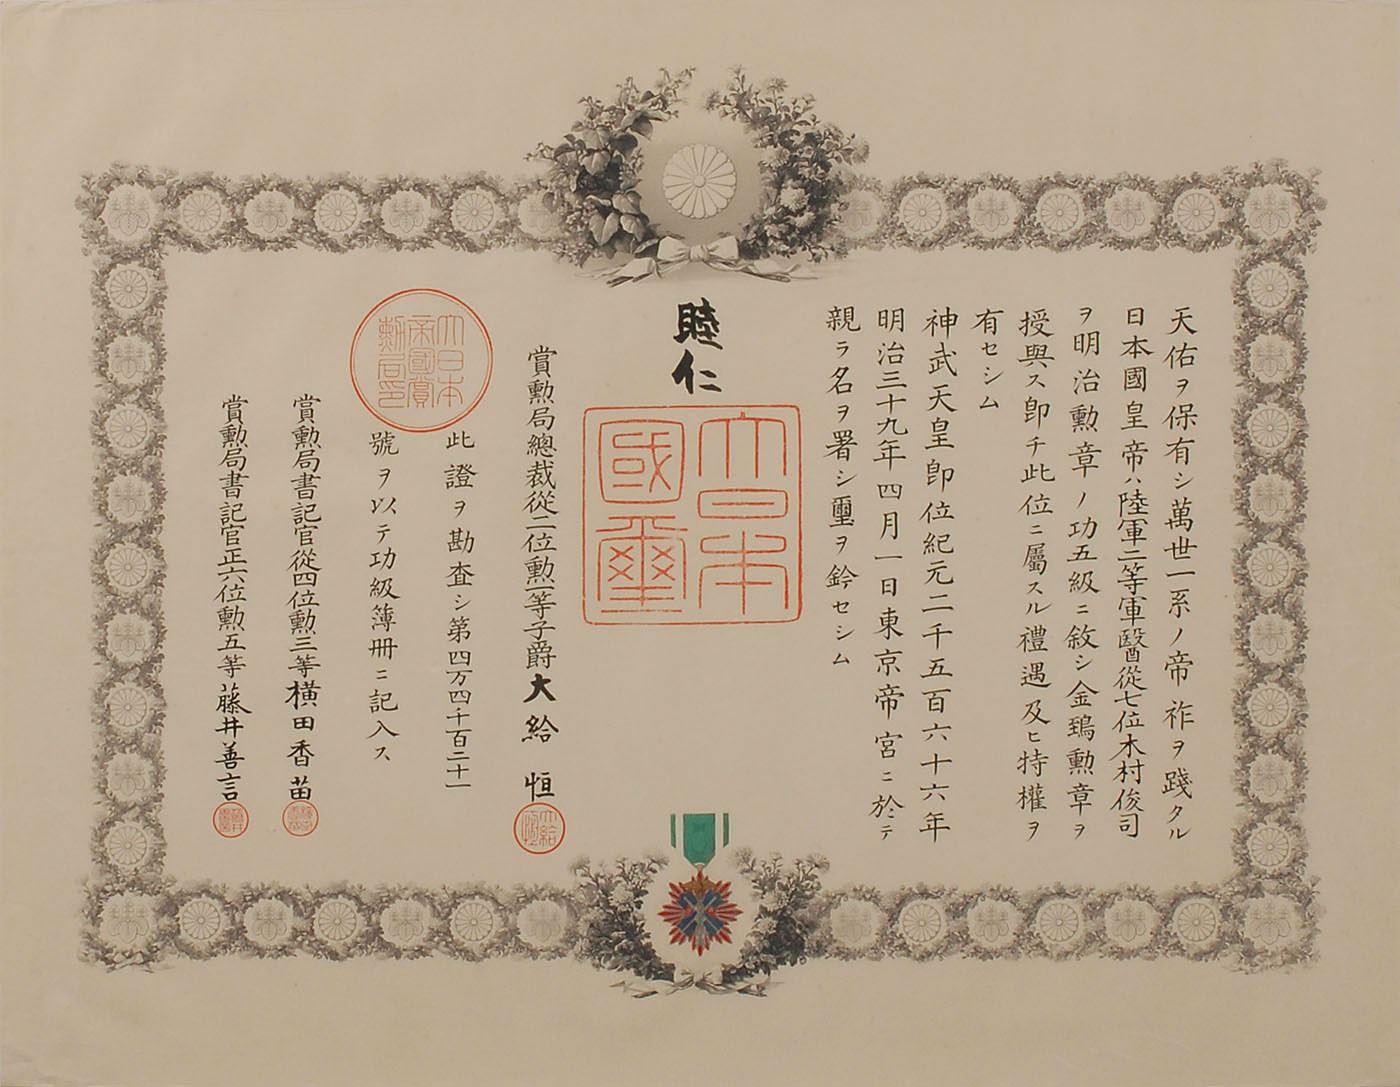 天佑ヲ保有シ萬世一系ノ帝祚ヲ踐タル
日本國皇帝ハ陸軍二等軍醫從七位木村俊司
ヲ明治勲章ノ功五級ニ敘シ金鵄勲章ヲ
授與ス卽チ此位ニ屬スル禮遇及ヒ特權ヲ
有セシム
神武天皇卽位紀元二千五百六十六年
明治三十九年四月一日東京帝宮ニ於テ
親ラ名ヲ署シ璽ヲ鈐セシム
睦仁
大日本
國璽
賞勲局總裁從二位勲一等子爵大給恒
大給
大日本
帝國賞
勲局印
此證ヲ勘査シ第四万四千百二十一
號ヲ以テ功級簿册ニ記入ス
賞勲局書記官從四位勲三等橫田香苗
賞勲局書記官正六位勲五等藤井善言